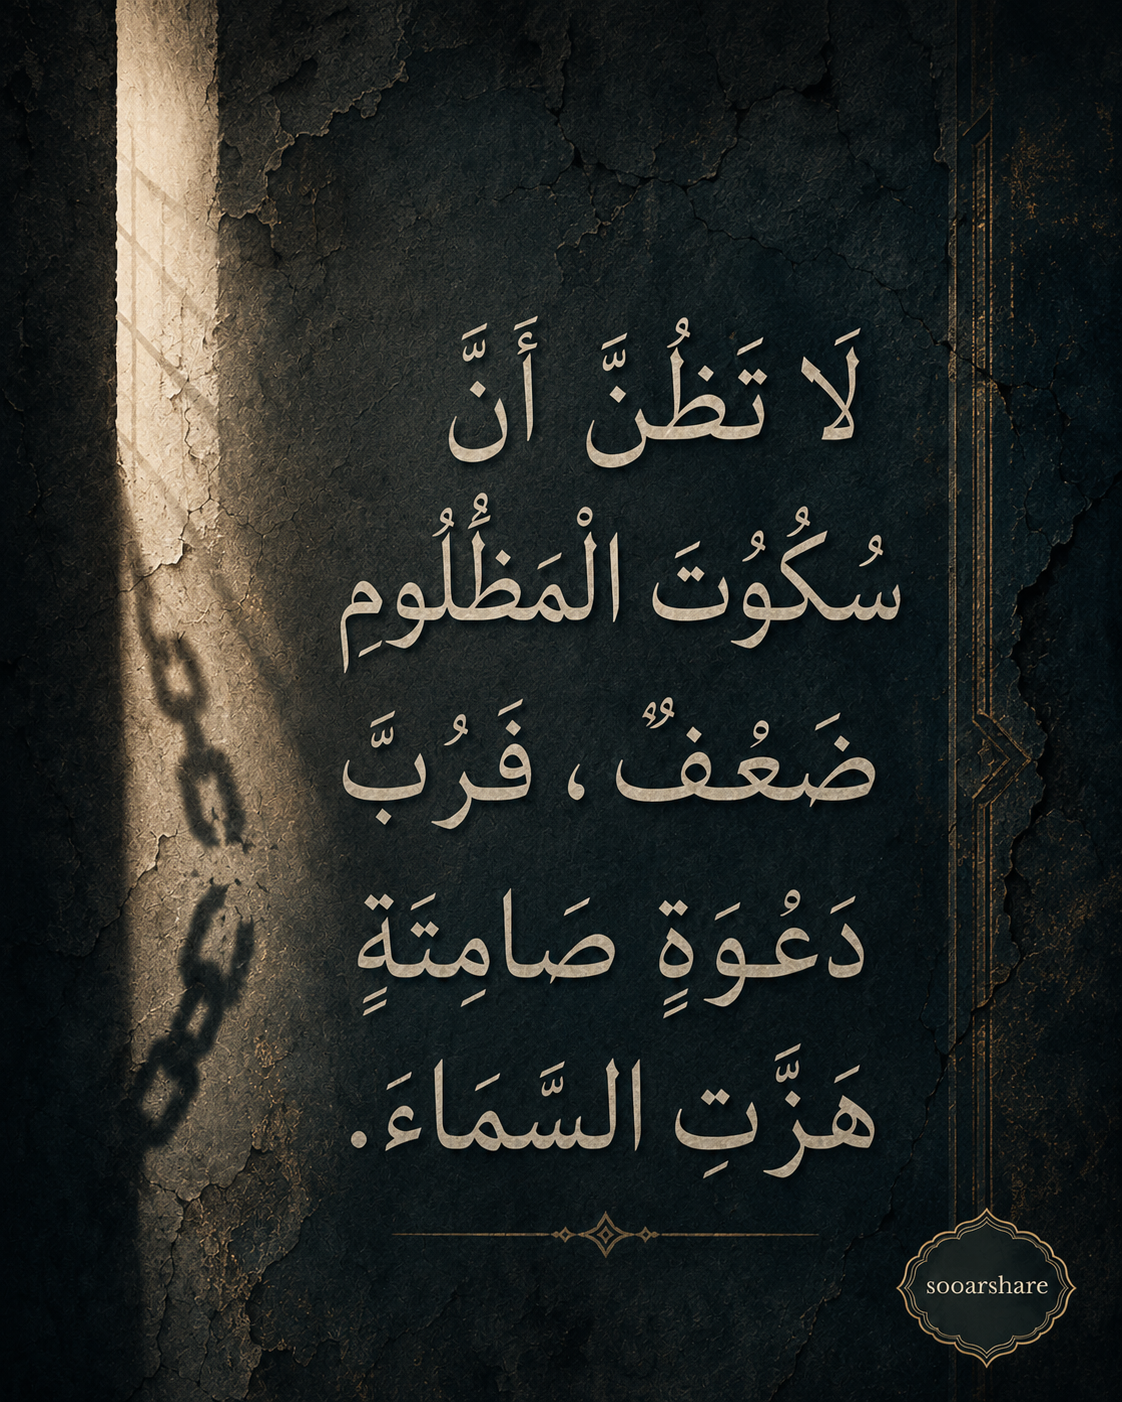 لَا تَظُنَّ أَنَّ
سُكُوُتَ الْمَظُأُلُومِ
ضَعُفٌ، فَرُبَّ
دَعُوَةٍ صَامِتَةٍ
هَزَّتِ السَّمَاءَ.
sooarshare